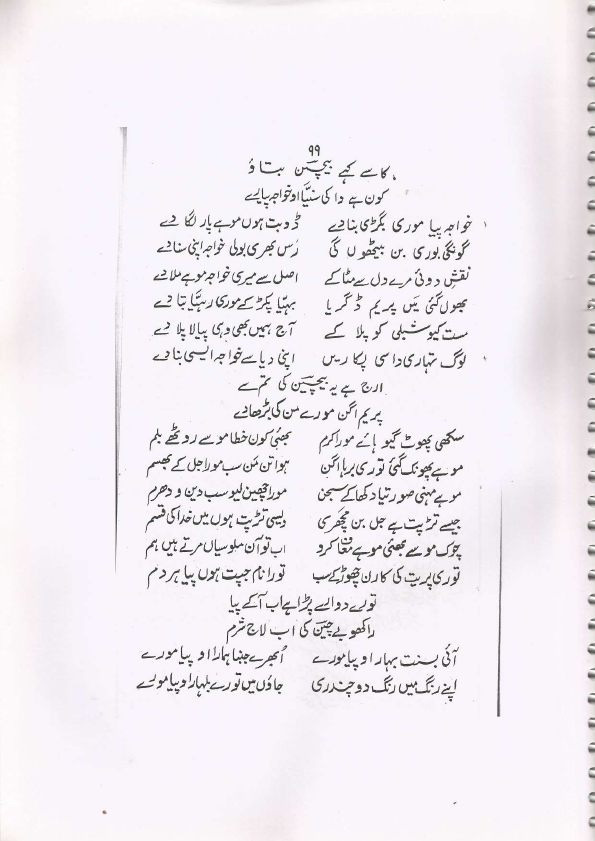 ۹۹
کاسے کہے بیچین بتاؤ
کون ہے وا کی سنیّا او خواجہ پیارے
خواجہ پیا موری بگڑی بنا دے ڈوبت ہوں موہے پار لگا دے
گونگی بوری بن بیٹھوں گی رس بھری بولی خواجہ اپنی سنا دے
نقش دوئی مرے دل سے مٹا کے اصل سے میری خواجہ موہے ملا دے
بھول گئی میں پریم ڈگریا بہیّا پکڑ کے موری رہیّا بتا دے
ست کیو شبلی کو پلا کے آج ہمیں بھی وہی پیالا پلا دے
لوگ تمہاری داسی پکاریں اپنی دیا سے خواجہ ایسی بنا دے
ارج ہے یہ بیچین کی تم سے
پریم اگن مورے من کی بڑھا دے
سکھی پھوٹ گیو ہائے مورا کرم بھئی کون خطا مو سے روٹھے بلم
موہے پھونک گئی توری برہا اگن ہوا تن من سب مورا جل کے بھسم
موہے مہنی صورتیا دکھا کے سجن مورا چھین لیو سب دین و دھرم
جیسے تڑپت ہے جل بن مچھری ویسی تڑپت ہوں میں خدا کی قسم
چوک مو سے بھئی موہے معاف کرو اب تو آن ملو سیاں مرتے ہیں ہم
توری پریت کی کارن چھوڑ کے سب تورا نام جپت ہوں پیا ہر دم
تورے دوارے پڑا ہے اب آ کے پیا
راکھو بے چین کی اب لاج شرم
آئی بسنت بہار او پیا مورے ابھرے جبنا ہمارا او پیا مورے
اپنے رنگ میں رنگ دو چندری جاؤں میں تورے بلہار او پیا مورے